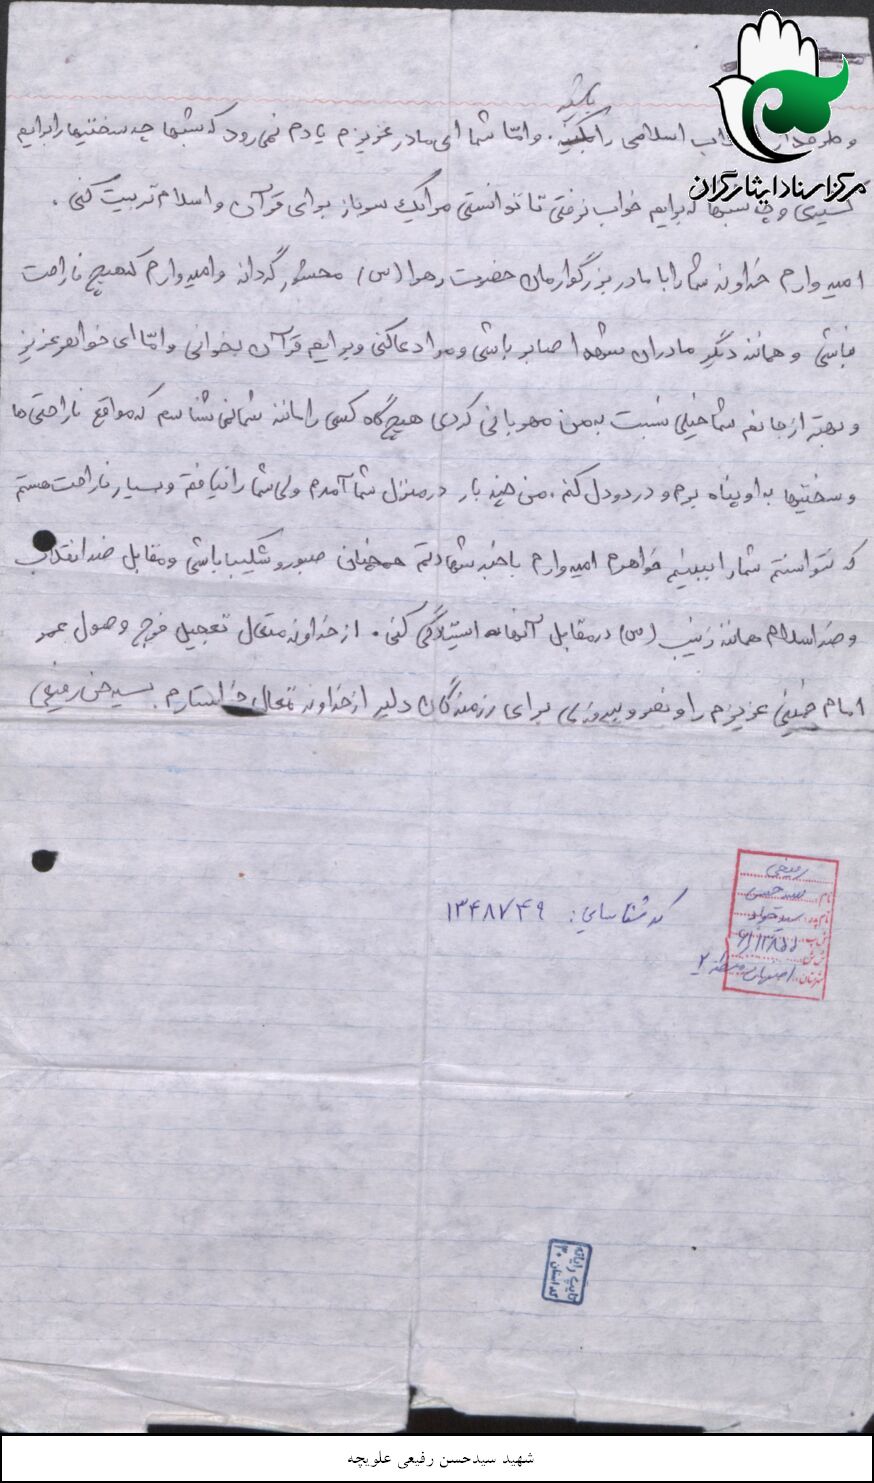 مرکز اسناد ایثارگران
باشید
و طرفدار انقلاب اسلامی را بکنید. و امّا شما ای مادر عزیزم یادم نمی رود که شبها چه سختیها را برایم
کشیدی و چه شبها که برایم خواب نرفتی تا توانستی مرا یک سرباز برای قرآن و اسلام تربیت کنی .
امیدوارم خداوند شما را با مادر بزرگوارمان حضرت زهرا (س) محشور گرداند و امیدوارم که هیچ ناراحت
نباشی و همانند دیگر مادران شهدا صابر باشی و مرا دعا کنی و برایم قرآن بخوانی و امّا ای خواهر عزیز
و بهتر از جانم شما خیلی نسبت به من مهربانی کردی هیچ گاه کسی را مانند شما نمی شناسم که مواقع ناراحتی ها
و سختیها به او پناه برم و درد دل کنم. من چند بار در منزل شما آمدم ولی شما را نیافتم و بسیار ناراحت هستم
که نتوانستم شما را ببینم خواهرم امیدوارم با خبر شهادتم همچنان صبور و شکیبا باشی و مقابل ضد انقلاب
و ضد اسلام همانند زینب (س) در مقابل آنها ایستادگی کنی . از خداوند متعال تعجیل فرج و طول عمر
امام خمینی عزیزم را و نصر و پیروزی برای رزمندگان دلیر از خداوند متعال خواستارم. سید حسن رفیعی
رفیعی
نام: سید حسن
نام پدر: سید جواد
ش پ:
ش ش:
شهرستان: اصفهان منطقه ۲
کد شناسایی: ۱۳۴۸۷۴۹
تایپ رایانه
۳۰
کد استان
شهید سیدحسن رفیعی علویچه